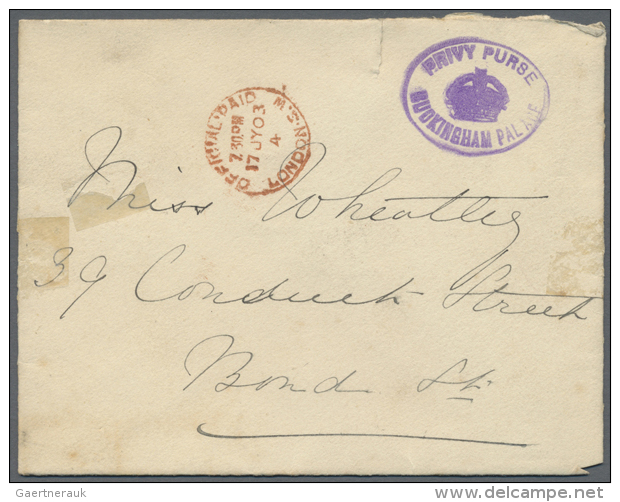 PRIVY PURSE
BUCKINGHAM PALACE
LONDON.S.W.
OFFICIAL PAID
7.30PM
17 JY 03
4
Miss Wheatley
39 Conduit Street
Bond St.
Gaertnerauk
www.delcampe.net